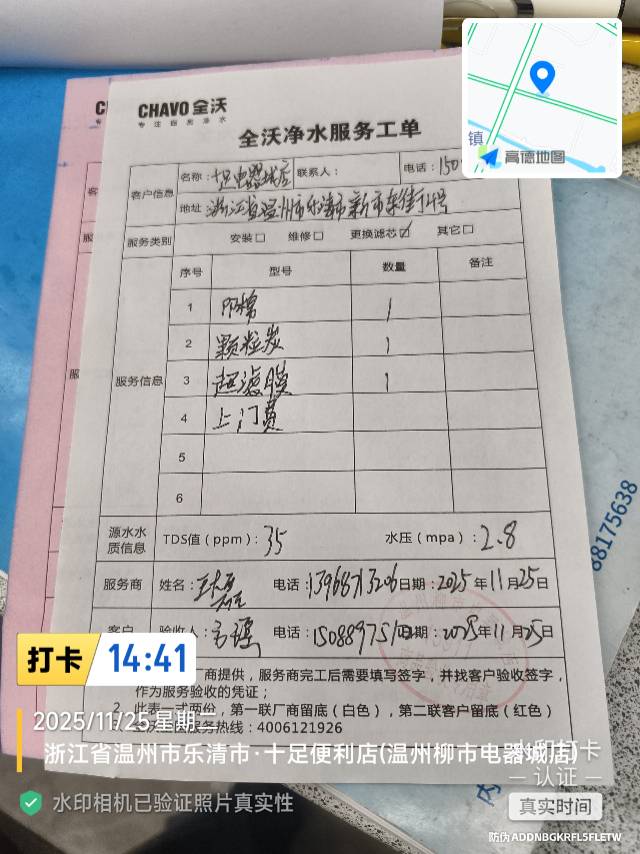 CHAVO 全沃
专注厨房净水
全沃净水服务工单
客户信息
名称：十足电器城店
联系人：
电话：150
地址：浙江省温州市乐清市新市东街14号
服务类别
安装□ 维修□ 更换滤芯☑ 其它□
服务信息
序号 型号 数量 备注
1 PP棉 1
2 颗粒炭 1
3 超滤膜 1
4 上门费
5
6
源水水质信息
TDS值（ppm）：35 水压（mpa）：2.8
服务商 姓名： 电话：13968713206 日期：2025年11月25日
客户 验收人： 电话：1508897510 日期：2025年11月25日
厂商提供，服务商完工后需要填写签字，并找客户验收签字，
作为服务验收的凭证；
2、此表一式两份，第一联厂商留底（白色），第二联客户留底（红色）
全沃全国服务热线：4006121926
88175638
镇
高德地图
打卡 14:41
2025/11/25 星期二
浙江省温州市乐清市·十足便利店(温州柳市电器城店)
水印相机已验证照片真实性
水印打卡
认证
真实时间
防伪ADDNBGKRFL5FLETW